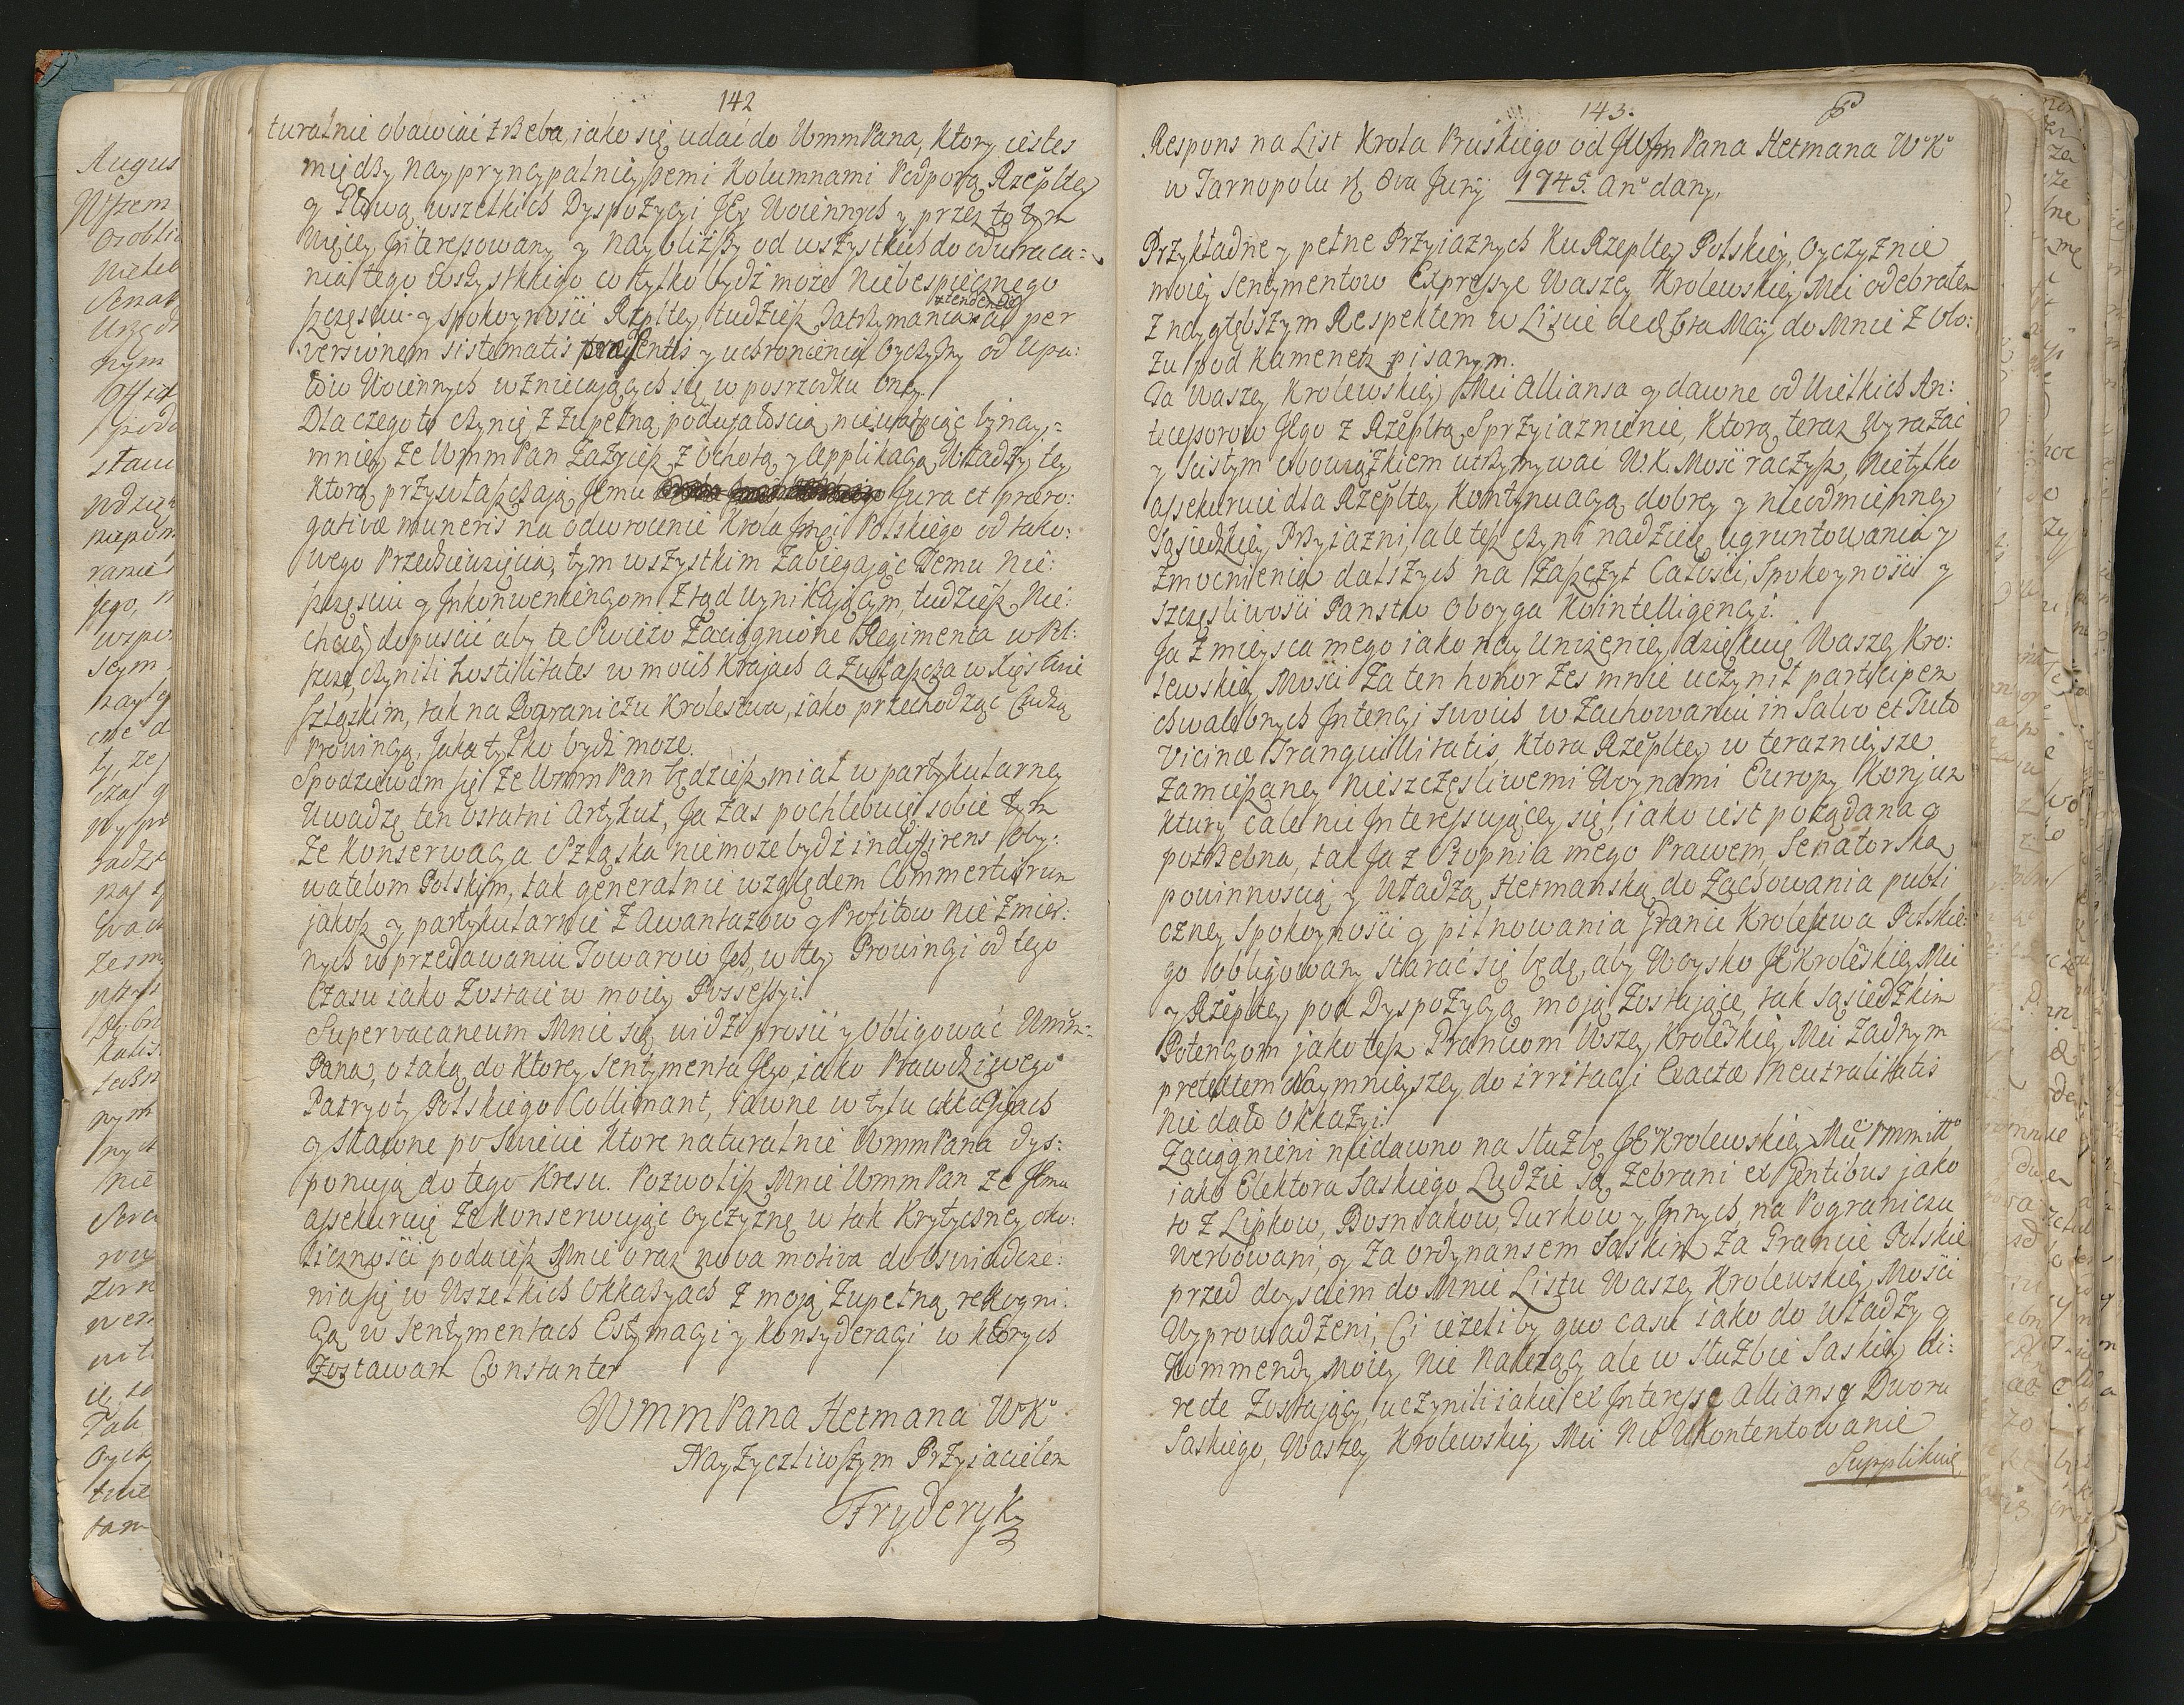 142
turalnie obawiać trzeba, iako się udać do WmmPana, ktory iestes
między naypryncypalnieyszemi Kolumnami Podporą Rzeplتey
y Głową wszelkich Dyspozycyi Jey Woiennych y przez to tym
więcey Interessowany y naybliższy od wszystkich do odwraca=
nia tego wszystkiego co tylko bydź może Niebespiecznego
szczęsciu y spokoyności Rzpltey, tudziesz zatrzymania ad per
versionem sistematis praesentis y uchronienia Oyczyzny od Upa:
łow Woiennych wzniecaiących się w posrzodku Oney.
Dla czego to czynię z zupełną podufałoscią, nie wątpiąc bynay=
mniey, że WmmPan zażyiesz z ochotą y applikacyą Władzy tey
ktorą przywłaszczają Jemu Jura et prero:
gativæ muneris na odwrocenie Krola Jmci Polskiego od tako:
wego Przedsięwzięcia, tym wszystkim zabiegając Jemu nie:
szczęsciu y Inkonweniencyom ztąd wynikającym, tudziesz Nie
chciey dopuscić aby te swieżo zaciągnione Regimenta w Pol:
szcze, czynili hostilitates w moich Krajach a zwłaszcza w Xięstwie
Szląskim, tak na Pograniczu Krolestwa, iako przechodząc Cudzą
Prowincyą, Jaka tylko bydź może.
Spodziewam się że WmmPan będziesz miał w partykularney
Uwadze ten ostatni Artykuł, Ja zas pochlebuię sobie tym
że Konserwacya Szląska niemoże bydź indifferens Oby:
watelom Polskim, tak generalnie względem Commertiorum
jakosz y partykularnie z Awantażow y Profitow niezmier:
nych w przedawaniu Towarow Jch, w tey Prowincyi od tego
Czasu iako zostaie w moiey Possessyi.
Supervacaneum Mnie się widzi prosić y obligować Wmm=
Pana, o taką do ktorey sentymenta Jego, iako Prawdziwego
Patryoty Polskiego Collimant, iawne w tylu okkazyach
y sławne po Swiecie ktore naturalnie WmmPana dys:
ponują do tego Kresu. Pozwolisz Mnie WmmPan że Jemu
assekuruię że Konserwując Oyczyznę w tak Krytyczney oko:
liczności podaiesz Mnie oraz nova motiva do oswiadcze:
nia się w Wszelkich Okkazyach z moją zupełną rekogni:
cyą w sentymentach Estymacyi y Konsyderacyi w ktorych
Zostawam Constanter
WmmPana Hetmana WoKo
Nayżyczliwszym Przyiacielem
Fryderyk
143.
Respons na List Krola Pruskiego od JWJm Pana Hetmana WoKo
w Tarnopolu 8va Junij 1745. Ano dany.
Przykładne y pełne Przyiaznych Ku Rzepltey Polskiey, Oyczyznie
moiey sentymentow Expressye Waszey Krolewskiey Mci odebrałem
z naygłębszym Respektem w Liscie de Maij do Mnie z Obo:
zu pod Kamenetz pisanym.
Ta Waszey Krolewskiey Mci Alliansa y dawne od Wielkich An:
tecessorow Jego z Rzepltą Sprzyiaznienie, ktorą teraz Wyrażać
y scisłym obowiązkiem utrzymywać W.K. Mość raczysz, Nietylko
assekuruie dla Rzepltey Kontynuacyą dobrey y nieodmienney
Sąsiedzkiey Przyiazni, ale tesz czyni nadzieię ugruntowania y
zmocnienia dalszych na Zaszczyt Całości, Spokoyności y
szczęsliwości Panstw oboyga Kointelligencyi.
Ja z mieysca mego iako nay unizeniey dziękuię Waszey Kro:
lewskiey Mości za ten honor żes mnie uczynił participem
chwalebnych Intencyi swoich w Zachowaniu in Salvo et Tuto
Vicinæ Tranquillitatis, ktora Rzepltey w terazniejsze
zamieszaney nieszczęsliwemi Woynami Europy Konjun
ktury całe nie Interessującey się, iako iest pożądana y
potrzebna, tak Ja z Stopnia mego Prawem, Senatorską
powinnoscią y Władzą Hetmańską do zachowania publi
czney Spokoyności y pilnowania Granic Krolestwa Polskie:
go obligowany starać się będę, aby Woysko JKKrolewskiey Mci
y Rzepltey pod Dyspozycyą moją zostające, tak sąsiedzkim
Potencyom jako tesz Prawom Wszey Krolewskiey Mci żadnym
pretextem Naymnieyszey do irritacyi Exactæ Neutralitatis
nie dało okkazyi.
Zaciągnieni niedawno na służbę JKrolewskiey Mci PnMmiłło
iako Elektora Saskiego Ludzie są zebrani ex Gentibus jako
to z Lipkow, Bosniakow, Turkow y Innych, na Pograniczu
werbowani, y za ordynansem Saskim za Granice Polskie
przed doysciem do Mnie Listu Waszey Krolewskiey Mości
Wyprowadzeni, Ci ieżeliby quo casu iako do władzy y
Kommendy moiey nie należący ale w służbie Saskiey di:
recte zostający, uczynili iakie ex Interesse Alliansy Dworu
Saskiego, Waszey Krolewskiey Mci Nie Ukontentowanie
Supplikuię